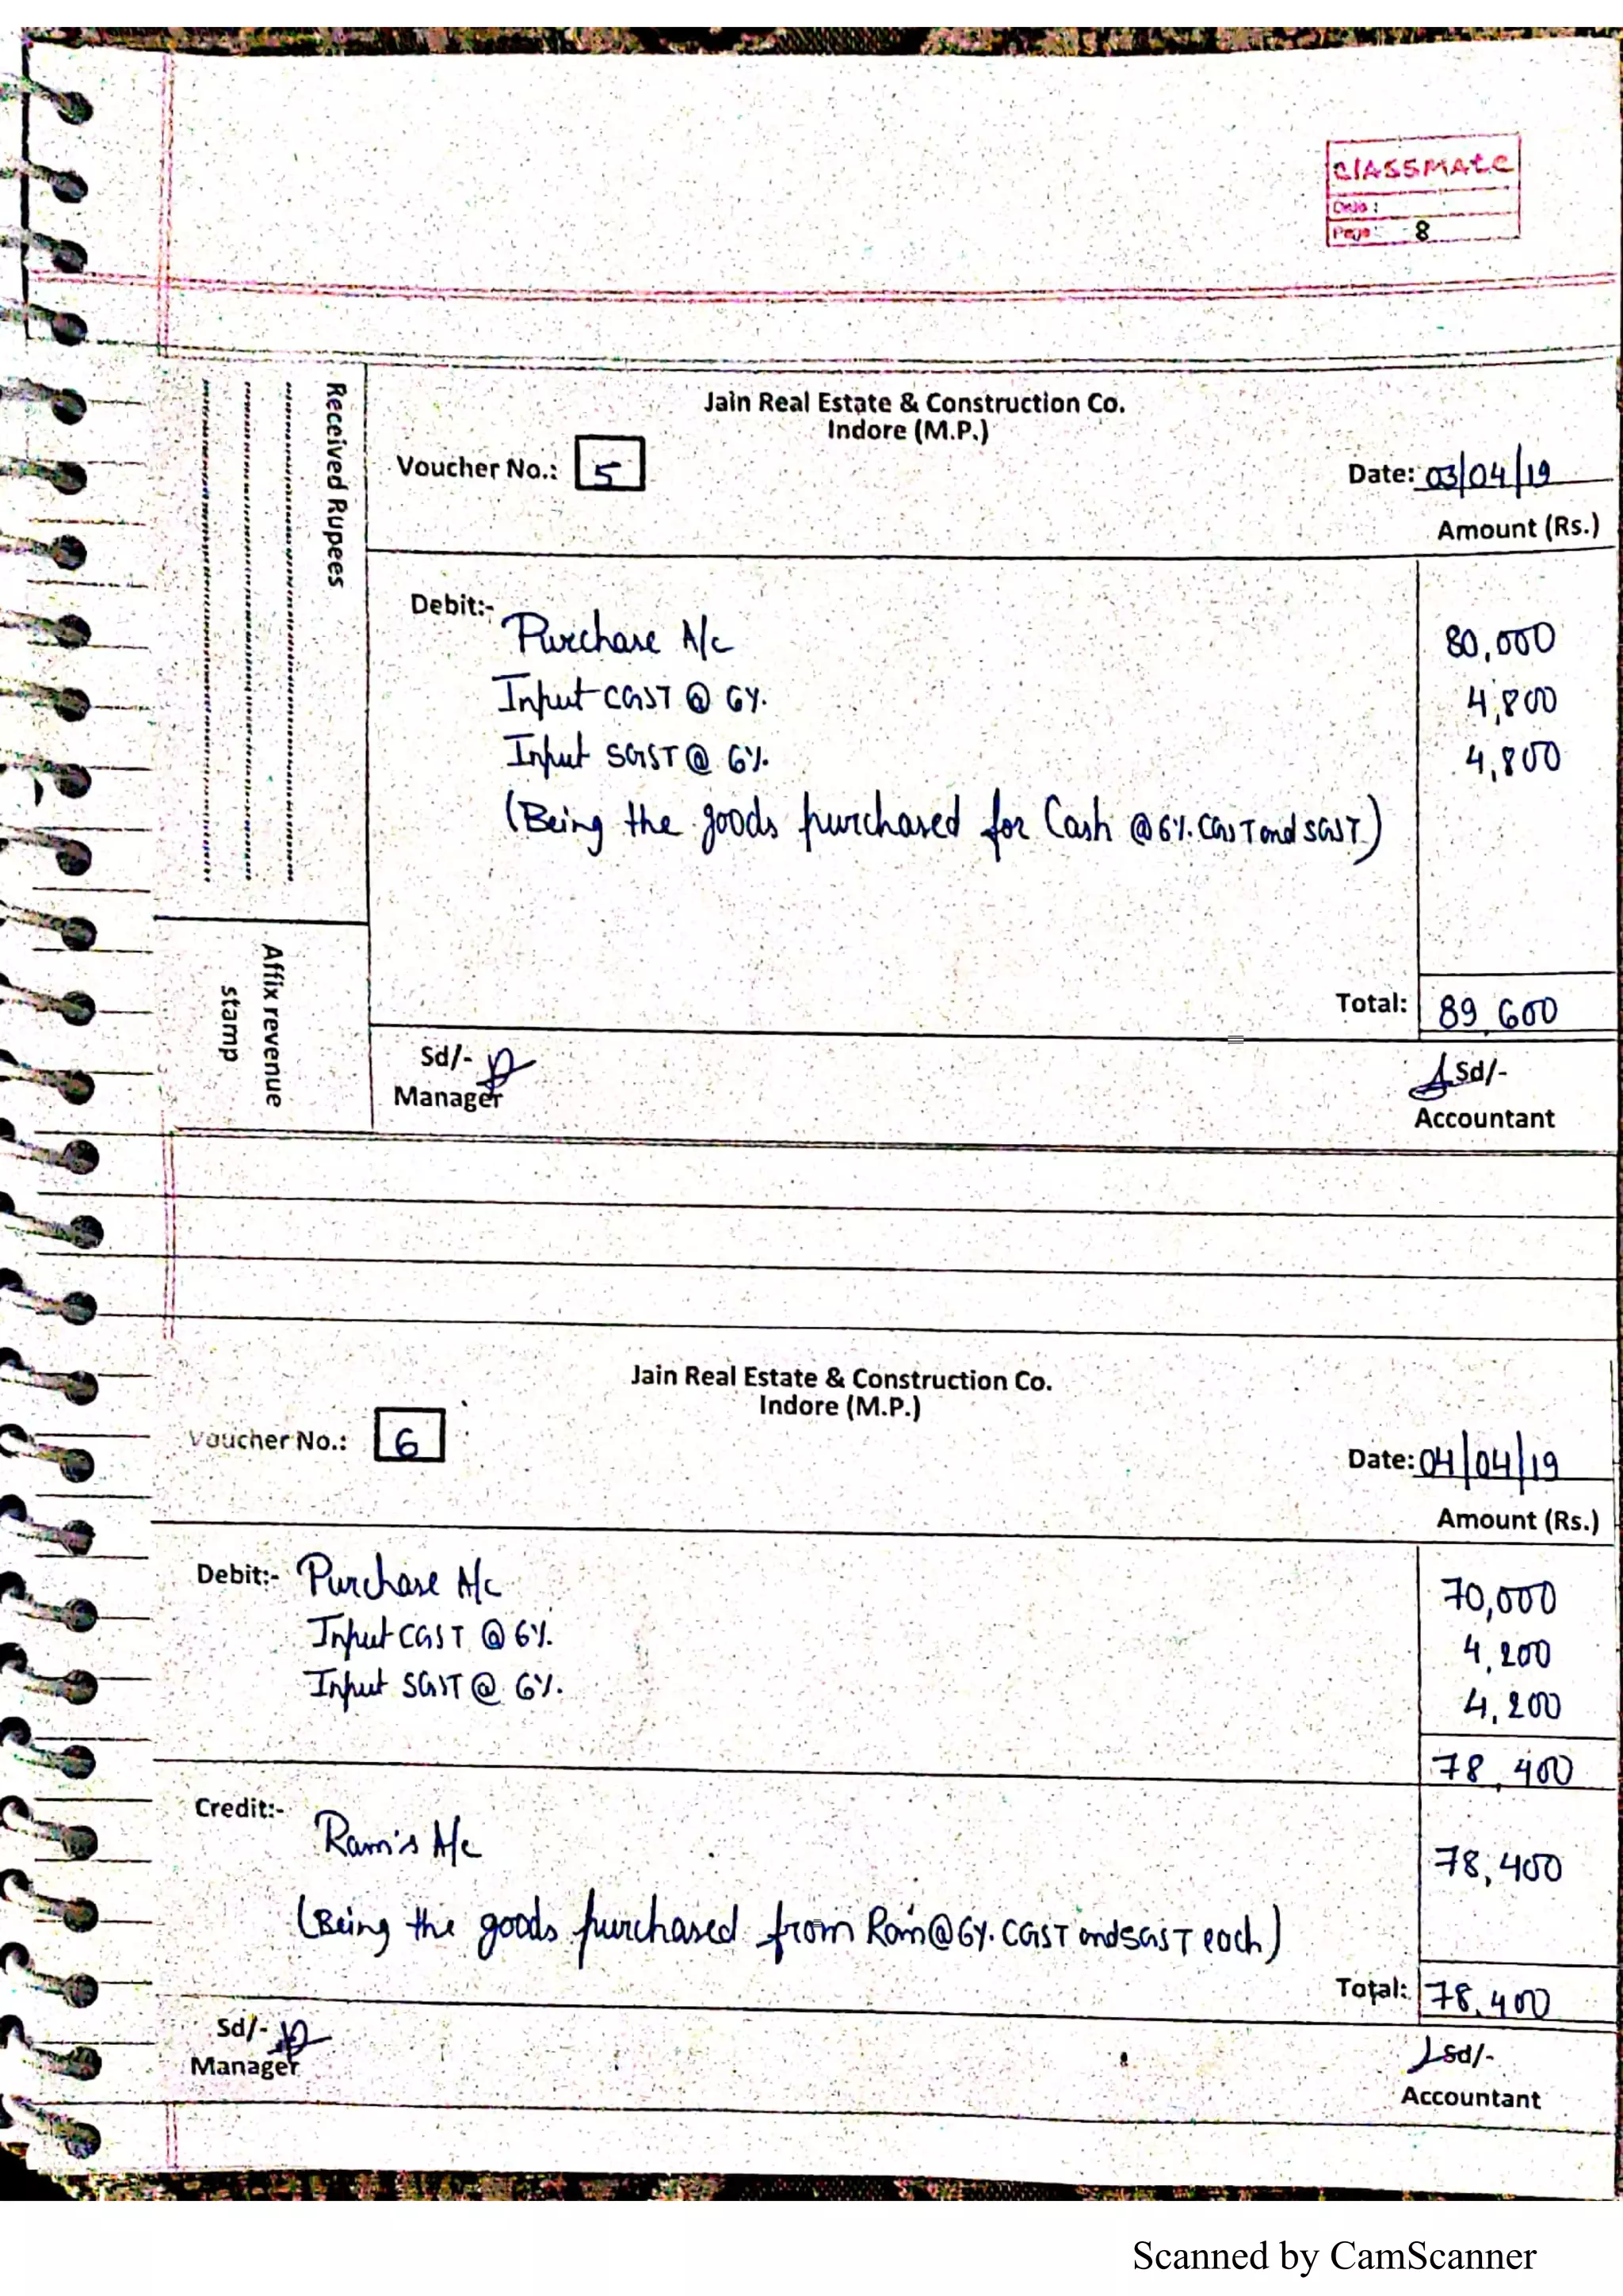 classmate
Date :
Page : 8
Jain Real Estate & Construction Co.
Indore (M.P.)
Voucher No.: 5
Date: 03/04/19
Amount (Rs.)
Received Rupees
Debit:- Purchase A/c 80,000
Input CGST @ 6% 4,800
Input SGST @ 6% 4,800
(Being the goods purchased for Cash @ 6% CGST and SGST)
Total: 89,600
Affix revenue
stamp
Sd/-
Manager
Sd/-
Accountant
Jain Real Estate & Construction Co.
Indore (M.P.)
Voucher No.: 6
Date: 04/04/19
Amount (Rs.)
Debit:- Purchase A/c 70,000
Input CGST @ 6% 4,200
Input SGST @ 6% 4,200
78,400
Credit:-
Ram's A/c 78,400
(Being the goods purchased from Ram @ 6% CGST and SGST each)
Total: 78,400
Sd/-
Manager
Sd/-
Accountant
Scanned by CamScanner